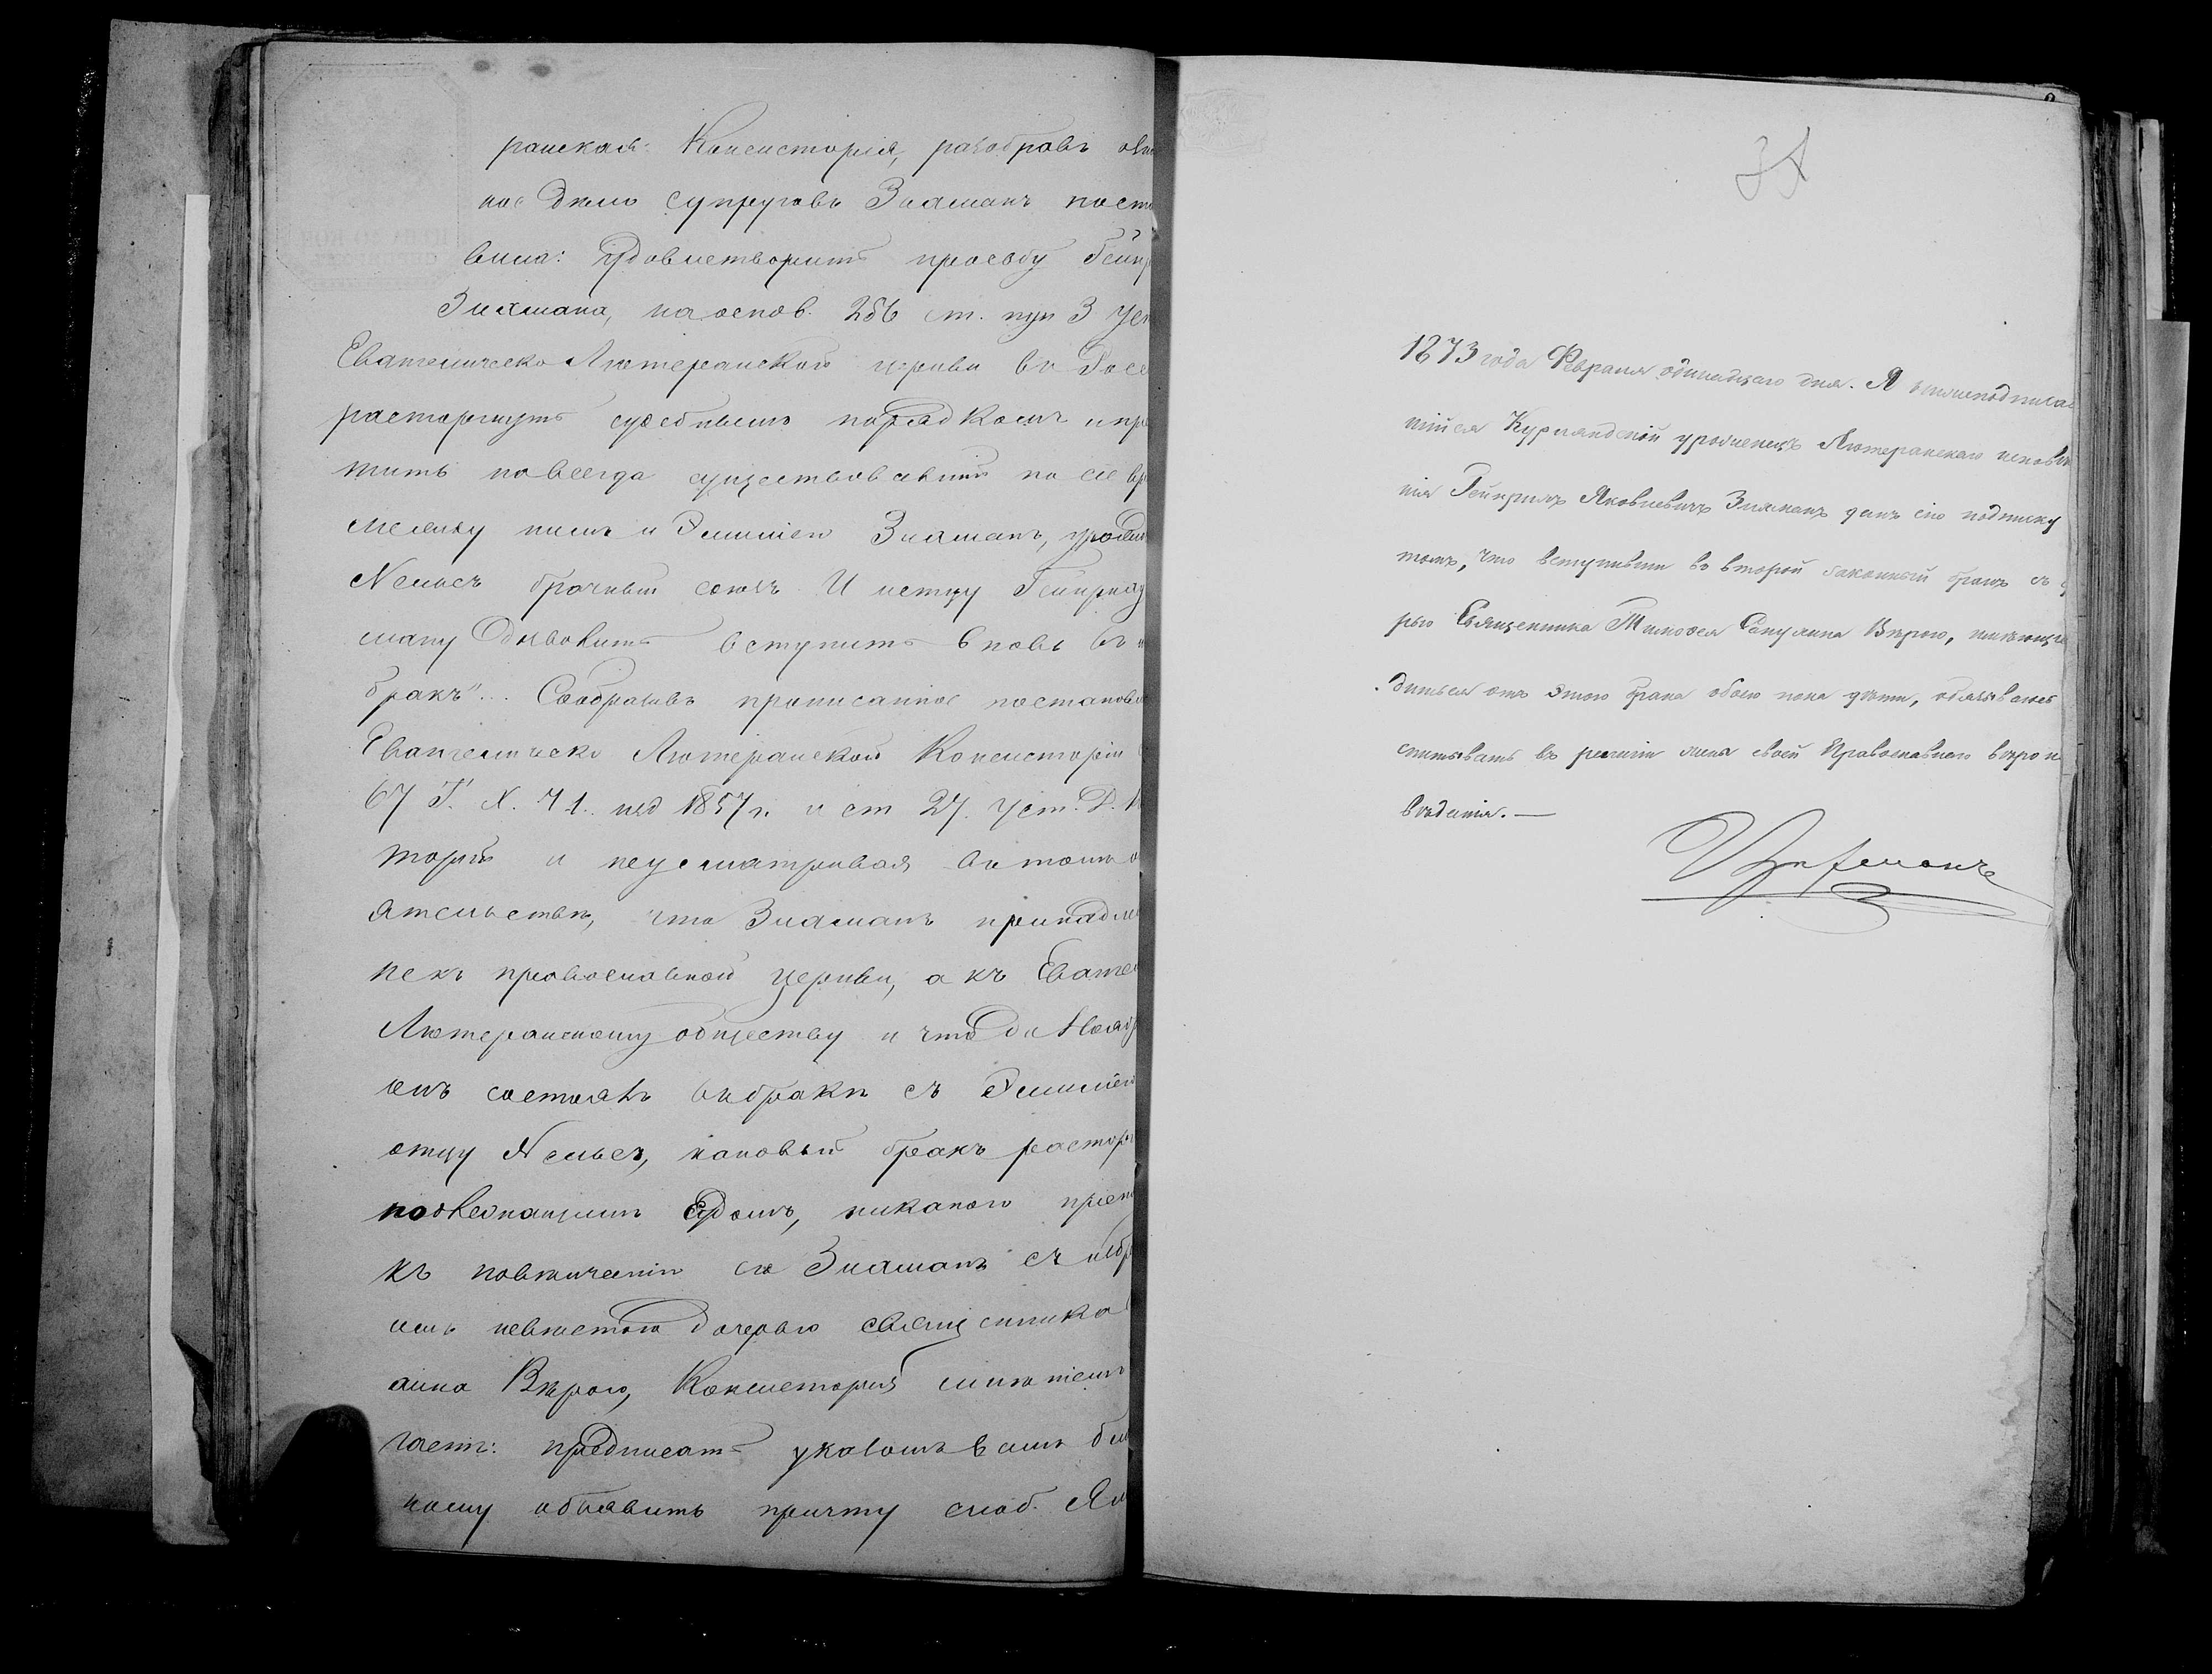 ранская Консисторія, разобравъ
ное дѣло супруговъ Зихманъ поста
вила: Удовлетворить просьбу Гейнр
Зихмана, на основ. 256 ст. пун 3 Уст
Евангелическо Лютеранской церкви въ Росс
расторгнуть судебнымъ порядкомъ и пре
тить навсегда существовавшій по сіе вре
между нимъ и Эмиліею Зихманъ, урожд
Нельсъ брачный союзъ. И истцу Гейнриху
ману дозволить вступить вновь въ
бракъ"... Сообразивъ прописанное постановл
Евангелическо Лютеранской Консисторіи
67 Т. X. Ч 1. изд 1857 г. и ст 27. Уст. Д. К
торій и неусматривая въ томъ о
ятельствѣ, что Зихманъ принадле
не къ православной церкви, а къ Еванге
Лютеранскому обществу и что до Ноябр
онъ состоялъ въ бракѣ съ Эмиліею
отцу Нельсъ, каковый бракъ расторг
подлежащимъ Судомъ, никакого преп
къ повѣнчанію его Зихманъ съ избр
имъ невѣстою дочерью священника
лина Вѣрою, Консисторія мнѣніемъ
гаетъ: предписать указомъ вамъ бл
ному объявить причту слоб.
1873 года Февраля одинадцаго дня. Я нижеподписав
шійся Курляндскій уроженецъ Лютеранскаго исповѣд
нія Гейнрихъ Яковлевичъ Зихманъ далъ сію подписку
томъ, что вступивши въ второй законный бракъ съ д
рью Священника Тимофея Сапулина Вѣрою, имѣющіе
диться отъ этого брака обоего пола дѣти, обязываюсь
спитывать въ религіи жены своей Православнаго вѣро и
вѣданія. —
Зихманъ